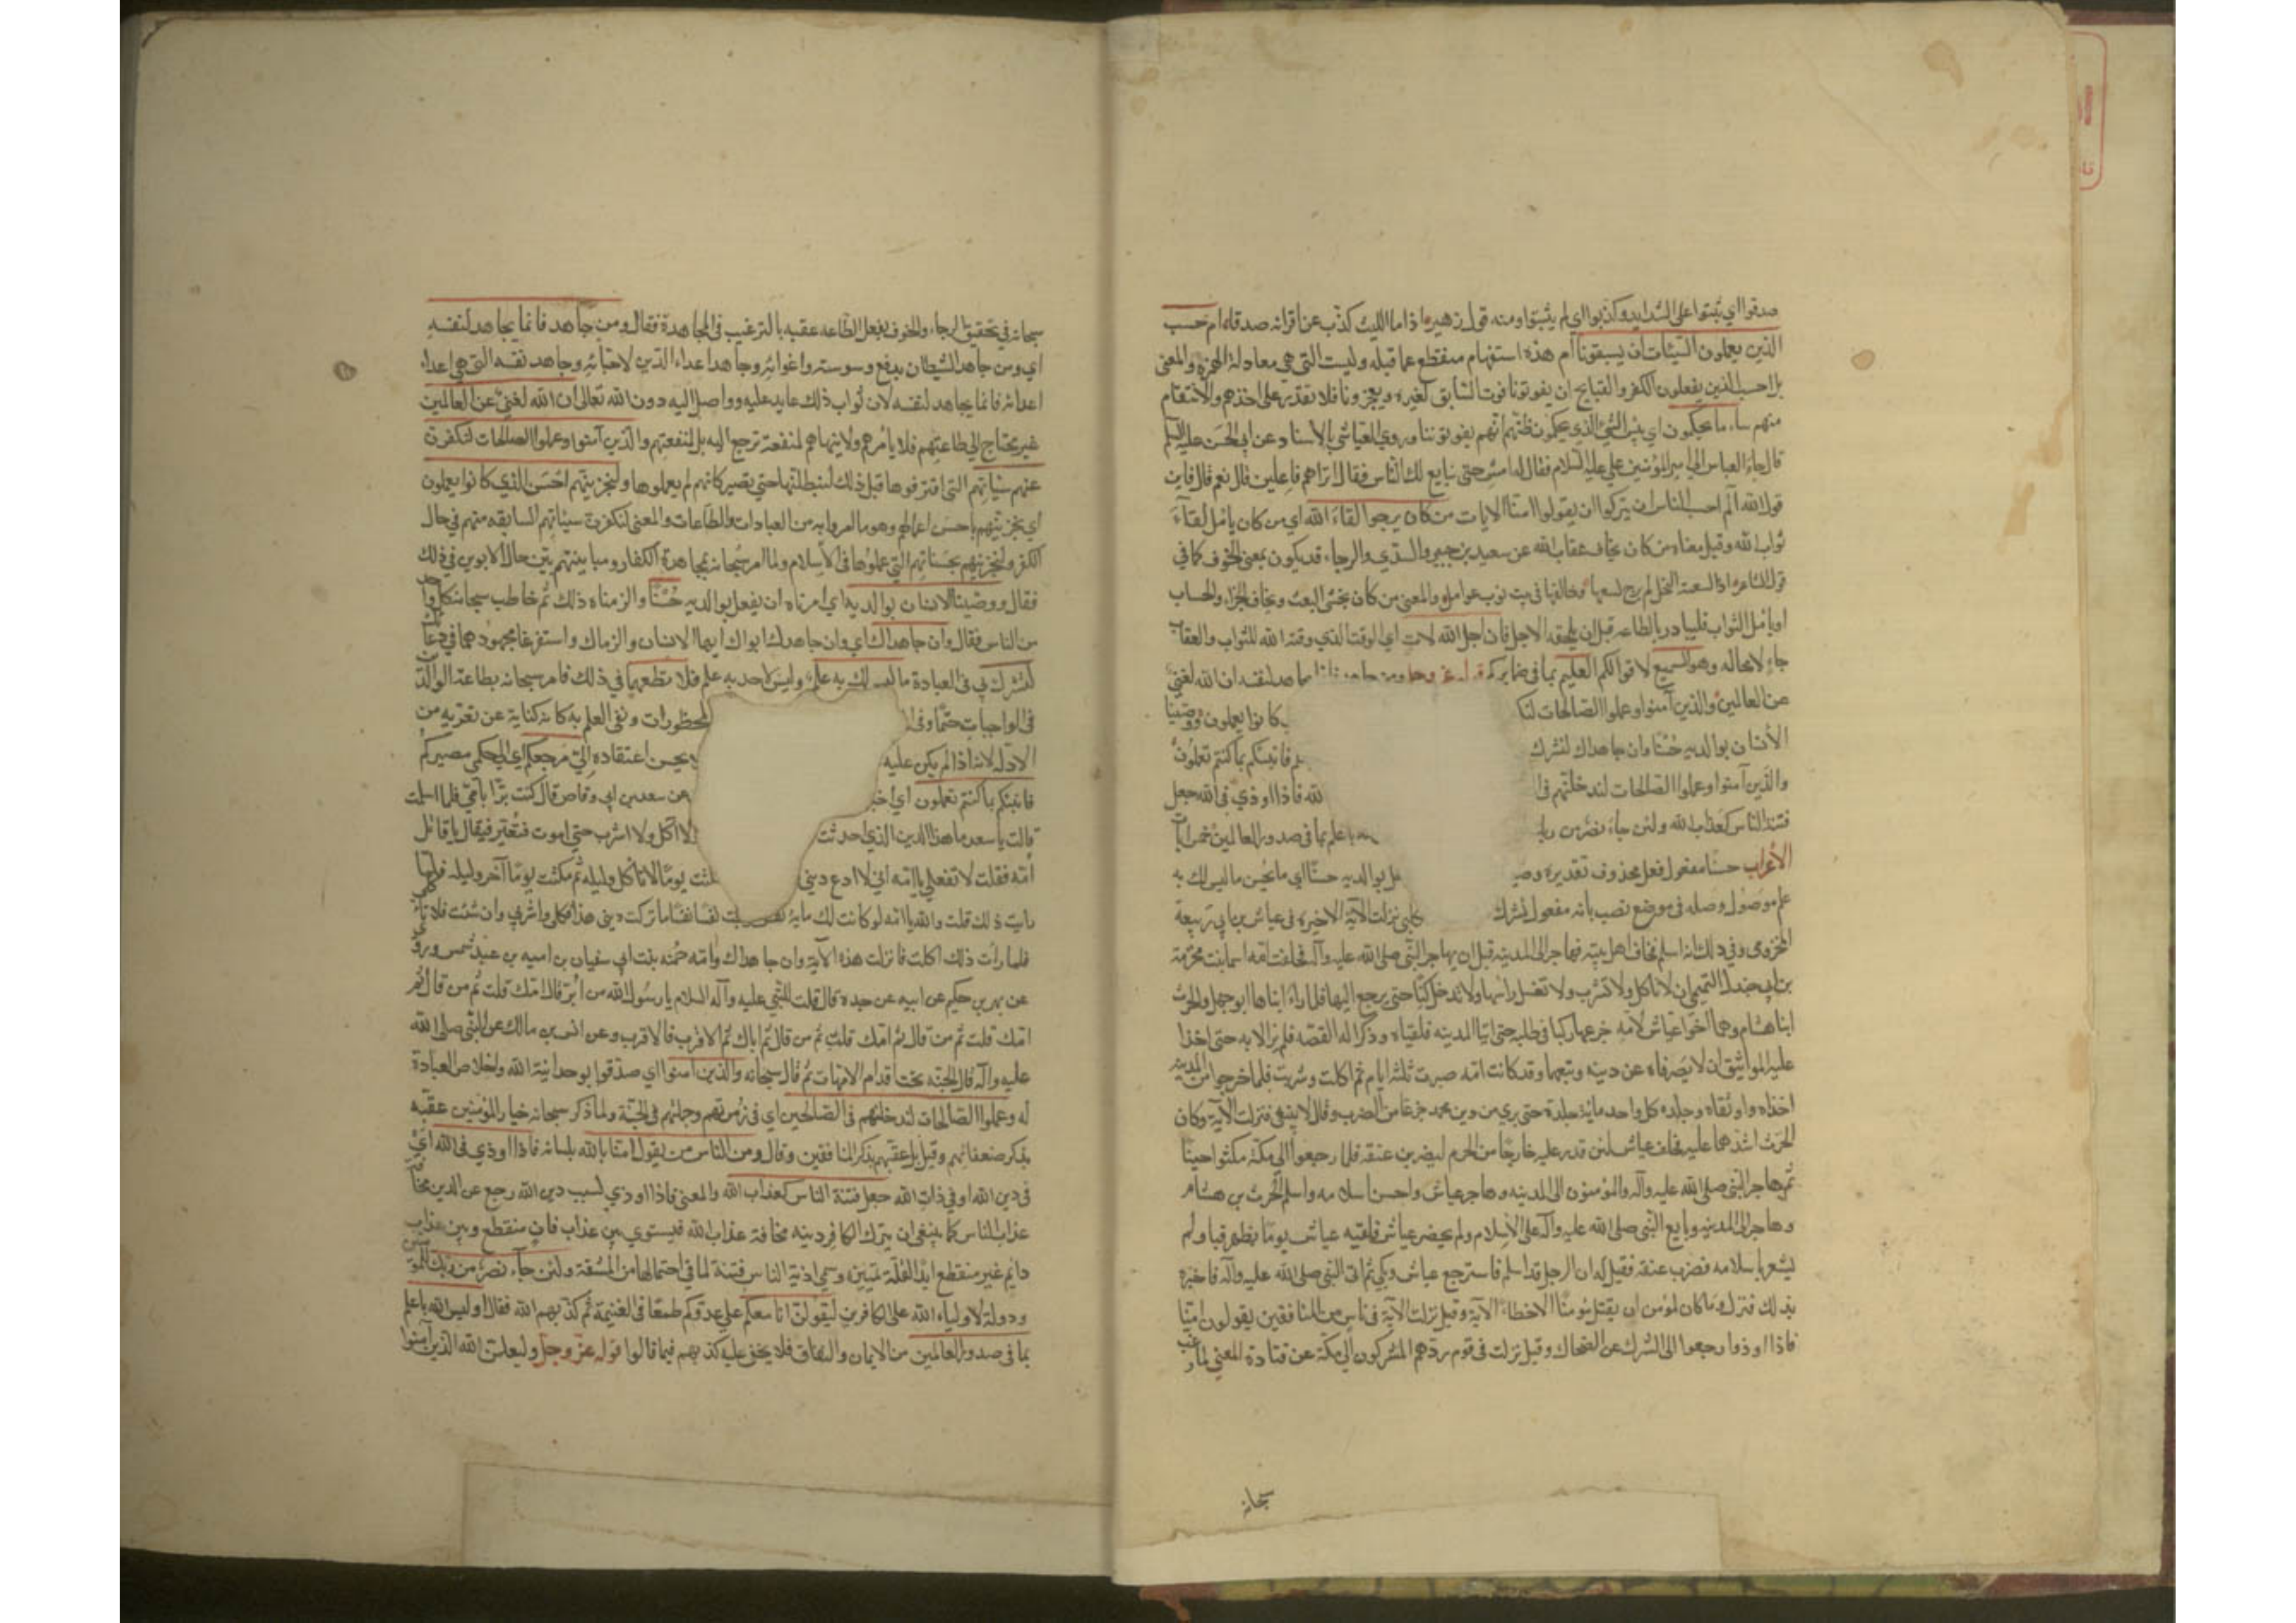 صدقوا اي ثبتوا على الشدايد وكذبوا اي لم يثبتوا ومنه قول زهير اذا ما الليث كذب عن اقرانه صدقا ام حسب
الذين يعملون السيئات ان يسبقونا ام هذه استفهام منقطع عما قبله وليست التي هي معادلة الهمزة والمعنى
بل احسب الذين يفعلون الكفر والقبايح ان يفوتونا فوت السابق لغيره ويعجزونا فلا نقدر على اخذهم والانتقام
منهم ساء ما يحكمون اي بئس الشئ الذي يحكمون ظنهم انهم يفوتوننا وروى العياشي بالاسناد عن ابي الحسن عليه السلم
قال جاء العباس الى امير المؤمنين علي عليه السلام فقال له امش حتى نبايع لك الناس فقال اتراهم فاعلين قال نعم قال فاين
قول الله الم احسب الناس ان يتركوا ان يقولوا امنا الايات من كان يرجوا لقاء الله اي من كان يأمل لقاء
ثواب الله وقيل معناه من كان يخاف عقاب الله عن سعيد بن جبير والسدي والرجاء قد يكون بمعنى الخوف كما في
قول الشاعر اذا لسعته النحل لم يرج لسعها وخالفها في بيت نوب عوامل والمعنى من كان يخشى البعث ويخاف الجزاء والحساب
او يأمل الثواب فليبادر بالطاعه قبل ان يلحقه الاجل فان اجل الله لات اي الوقت الذي وقته الله للثواب والعقاب
جاء لا محاله وهو السميع لاقوالكم العليم بما في ضمايركم قوله عز وجل ومن جاهد فانما يجاهد لنفسه ان الله لغني
عن العالمين والذين آمنوا وعملوا الصالحات لنك كانوا يعملون ووصينا
الانسان بوالديه حسنا وان جاهداك لتشرك فانبئكم بما كنتم تعملون
والذين آمنوا وعملوا الصالحات لندخلنهم في لله فاذا اوذي في الله جعل
فتنة الناس كعذاب الله ولئن جاء نصر من ربك باعلم بما في صدور العالمين خمس آيات
الأعراب حسنا مفعول فعل محذوف تقديره وصي بوالديه حسنا اي ما يحسن ما ليس لك به
علم موصول وصله في موضع نصب بانه مفعول لتشرك نزلت الآية الاخيرة في عياش بن ابي ربيعة
المخزومي وذلك انه اسلم فخاف اهل بيته فهاجر الى المدينه قبل ان يهاجر النبي صلى الله عليه وآله فحلفت امه اسما بنت مخرمة
بن ابي جندل التميمي ان لا تاكل ولا تشرب ولا تغسل راسها ولا تدخل كنا حتى يرجع اليها فلما راء ابناها ابو جهل والحرث
ابنا هشام وهما اخوا عياش لامه جزعها ركبا في طلبه حتى اتيا المدينه فلقياه وذكرا له القصه فلم يزالا به حتى اخذا
عليهم المواثيق ان لا يصرفاه عن دينه وتبعهما وقد كانت امه صبرت ثلثه ايام ثم اكلت وشربت فلما خرجوا من المدينه
اخذاه واوثقاه وجلده كل واحد مائة جلدة حتى بري من دين محمد جزعا من الضرب وقال لا ينبغي فنزلت الآية وكان
الحرث اشدهما عليه فحلف عياش لئن قدر عليه خارجا من الحرم ليضربن عنقه فلما رجعوا الى مكة مكثوا حينا
ثم هاجر النبي صلى الله عليه وآله والمؤمنون الى المدينه وهاجر عياش واحسن اسلامه واسلم الحرث بن هشام
وهاجر الى المدينه وبايع النبي صلى الله عليه وآله على الاسلام ولم يحضر عياش فلقيه عياش يوما بظهر قبا ولم
يشعر باسلامه فضرب عنقه فقيل له ان الرجل قد اسلم فاسترجع عياش وبكى ثم اتى النبي صلى الله عليه وآله فاخبره
بذلك فنزل وما كان لمؤمن ان يقتل مؤمنا الا خطاء الآية وقيل نزلت الآية في ناس من المنافقين يقولون امنا
فاذا اوذوا رجعوا الى الشرك عن الضحاك وقيل نزلت في قوم ردهم المشركون الى مكة عن قتادة المعنى لما رغب
سبحانه
سبحانه في تحقيق الرجاء والخوف بفعل الطاعه عقبه بالترغيب في المجاهدة فقال ومن جاهد فانما يجاهد لنفسه
اي ومن جاهد الشيطان بدفع وسوسته واغوائه وجاهد اعداء الدين لاحيائه وجاهد نفسه التي هي اعداء
اعدائه فانما يجاهد لنفسه لان ثواب ذلك عايد عليه وواصل اليه دون الله تعالى ان الله لغني عن العالمين
غير محتاج الى طاعتهم فلا يأمرهم ولا ينهاهم لمنفعة ترجع اليه بل لمنفعتهم والذين آمنوا وعملوا الصالحات لنكفرن
عنهم سيئاتهم التي اقترفوها قبل ذلك لنبطلنها حتى تصير كانهم لم يعملوها ولنجزينهم احسن الذي كانوا يعملون
اي يجزينهم باحسن اعمالهم وهو ما امروا به من العبادات والطاعات والمعنى لنكفرن سيئاتهم السابقه منهم في حال
الكفر ولنجزينهم بحسناتهم التي عملوها في الاسلام ولما امر سبحانه بمجاهدة الكفار ومباينتهم بين حال الابوين في ذلك
فقال ووصينا الانسان بوالديه اي امرناه ان يفعل بوالديه حسنا والزمناه ذلك ثم خاطب سبحانه كل واحد
من الناس فقال وان جاهداك اي وان جاهدك ابواك ايها الانسان والزماك واستفرغا مجهودهما في دعائك
لتشرك بي في العبادة ما ليس لك به علم وليس لاحد به علم فلا تطعهما في ذلك فامر سبحانه بطاعة الوالدين
في الواجبات حتما وفي المحظورات ونفى العلم به كانه كناية عن تعريه من
الادلة لانه اذا لم يكن عليه يحسن اعتقاده الي مرجعكم اي الى حكمي مصيركم
فانبئكم بما كنتم تعملون اي اخبر عن سعد بن ابي وقاص قال كنت برا بامي فلما اسلمت
قالت يا سعد ما هذا الدين الذي احدثت لا آكل ولا اشرب حتى اموت فتعير فيقال يا قاتل
أمه فقلت لا تفعلي يا امه اني لا ادع ديني يوما لا تاكل وليله ثم مكثت يوما آخر وليله فلما
رايت ذلك قلت والله يا امه لو كانت لك مائة نفس نفسا نفسا ما تركت ديني هذا فكلي واشربي وان شئت فلا تأكلي
فلما رات ذلك اكلت فانزلت هذه الآية وان جاهداك وامه حمنه بنت ابي سفيان بن اميه بن عبد شمس وروى
عن بهز بن حكيم عن ابيه عن جده قال قلت للنبي عليه وآله السلام يا رسول الله من ابر قال امك قلت ثم من قال ثم
امك قلت ثم من قال ثم امك قلت ثم من قال ثم اباك ثم الاقرب فالاقرب وعن انس بن مالك عن النبي صلى الله
عليه وآله قال الجنه تحت اقدام الامهات ثم قال سبحانه والذين امنوا اي صدقوا بوحدانية الله واخلاص العبادة
له وعملوا الصالحات لندخلنهم في الصالحين اي في زمرتهم وجملتهم في الجنة ولما ذكر سبحانه خيار المؤمنين عقبه
بذكر ضعفائهم وقيل بل عقبهم بذكر المنافقين وقال ومن الناس من يقول امنا بالله بلسانه فاذا اوذي في الله اي
في دين الله او في ذات الله جعل فتنة الناس كعذاب الله والمعنى فاذا اوذي بسبب دين الله رجع عن الدين مخافة
عذاب الناس كما ينبغي ان يترك الكافر دينه مخافة عذاب الله فيستوي بين عذاب فان منقطع وبين عذاب
دايم غير منقطع ابدا لقلة تمييزه وسمي اذية الناس فتنة لما في احتمالها من المشقة ولئن جاء نصر من ربك للمؤمنين
ودولة لاولياء الله على الكافرين ليقولن انا معكم على عدوكم طمعا في الغنيمة ثم كذبهم الله فقال اوليس الله باعلم
بما في صدور العالمين من الايمان والنفاق فلا يخفى عليه كذبهم فيما قالوا قوله عز وجل وليعلمن الله الذين آمنوا